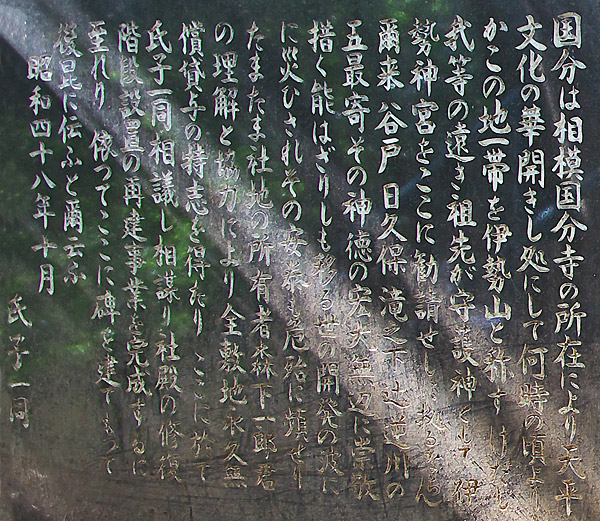 国分は相模国分寺の所在により天平
文化の華開きし処にして何時の頃より
かこの地一帯を伊勢山と称す けだし
我等の遠き祖先が守護神として伊
勢神宮をここに勧請せし 故ならん
爾来 谷戸 日久保 滝之下 辻 逆川の
五最寄その神徳の宏大無辺に崇敬
措く能はざりしも移る世の開発の波に
に災ひされその安泰も危殆に頻せり
たまたま社地の所有者森下一郎君
の理解と協力により全敷地永久無
償貸与の特志を得たり ここに於て
氏子一同相議し相謀り社殿の修復
階段設置の再建事業を完成するに
至れり 依つてここに碑を建てもつて
後昆に伝ふと爾云ふ
昭和四十八年十月
氏子一同